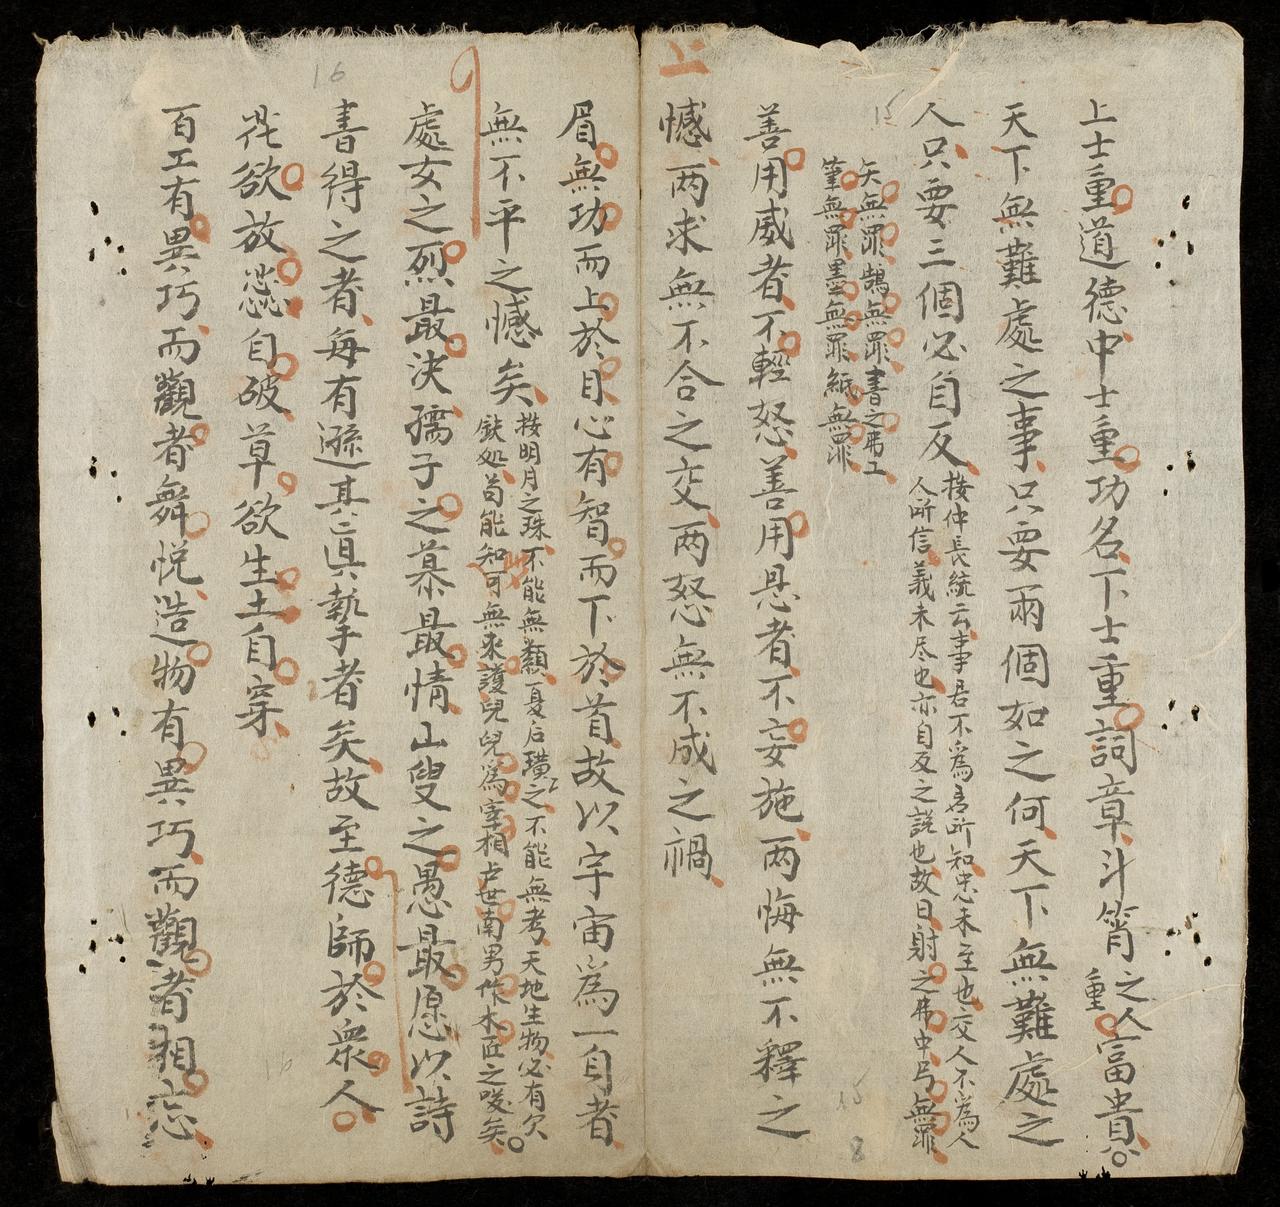 上士重道德中士重功名下士重詞章斗筲之人重富貴
天下無難處之事只要兩個如之何天下無難處之
人只要三個必自反
按仲長統云事君不為君所知忠未至也交人不為人
人所信義未尽也亦自反之説也故曰射之弗中弓無罪
矢無罪鵠無罪書之弗工
筆無罪墨無罪紙無罪
善用威者不輕怒善用恩者不妄施兩悔無不釋之
上
憾兩求無不合之交兩怒無不成之禍
眉無功而上於目心有智而下於首故以宇宙為一身者
無不平之憾矣
按明月之珠不能無纇夏后璜之不能無考天地生物必有欠
缺処苟能知可無求護兒兒為宰相世南男作木匠之嘆矣
處女之烈最決孺子之慕最情山叟之愚最愿以詩
書得之者每有遜其真摯者矣故至德師於衆人
花欲放蕊自破草欲生土自穿
百工有異巧而觀者舞悦造物有異巧而觀者相忘
16
15
16
15
8